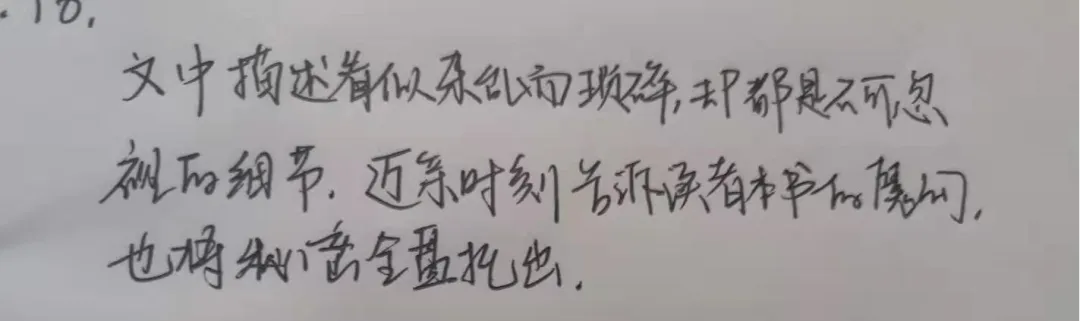 .18.
文中描述看似杂乱而琐碎,却都是不可忽
视的细节.迈东时刻告诉读者本书的魔幻,
也将秘密全盘托出.